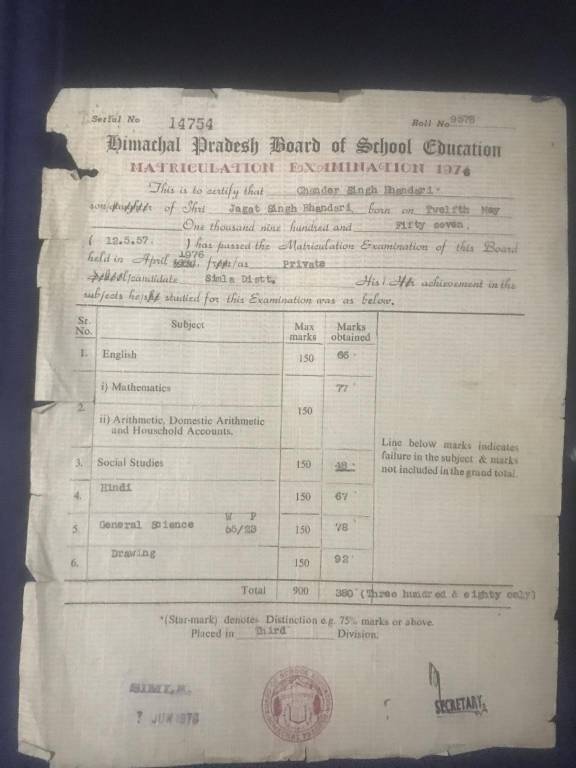 Serial No 14754 Roll No 9578
Himachal Pradesh Board of School Education
MATRICULATION EXAMINATION 1976
This is to certify that Chander Singh Bhandari
son/daughter of Shri Jagat Singh Bhandari, born on Twelfth May
One thousand nine hundred and Fifty seven.
( 12.5.57. ) has passed the Matriculation Examination of this Board
held in April 1976 from/as Private
School/candidate Simla Distt. His/Her achievement in the
subjects he/she studied for this Examination was as below.
Sr. No. Subject Max marks Marks obtained
1. English 150 66
2. i) Mathematics 150 77
ii) Arithmetic, Domestic Arithmetic
and Household Accounts.
3. Social Studies 150 48
4. Hindi 150 67
W P
5. General Science 55/23 150 78
6. Drawing 150 92
Line below marks indicates
failure in the subject & marks
not included in the grand total.
Total 900 380 (Three hundred & eighty only)
*(Star-mark) denotes Distinction e.g. 75% marks or above.
Placed in Third Division.
SIMLA.
7 JUN 1976
SECRETARY